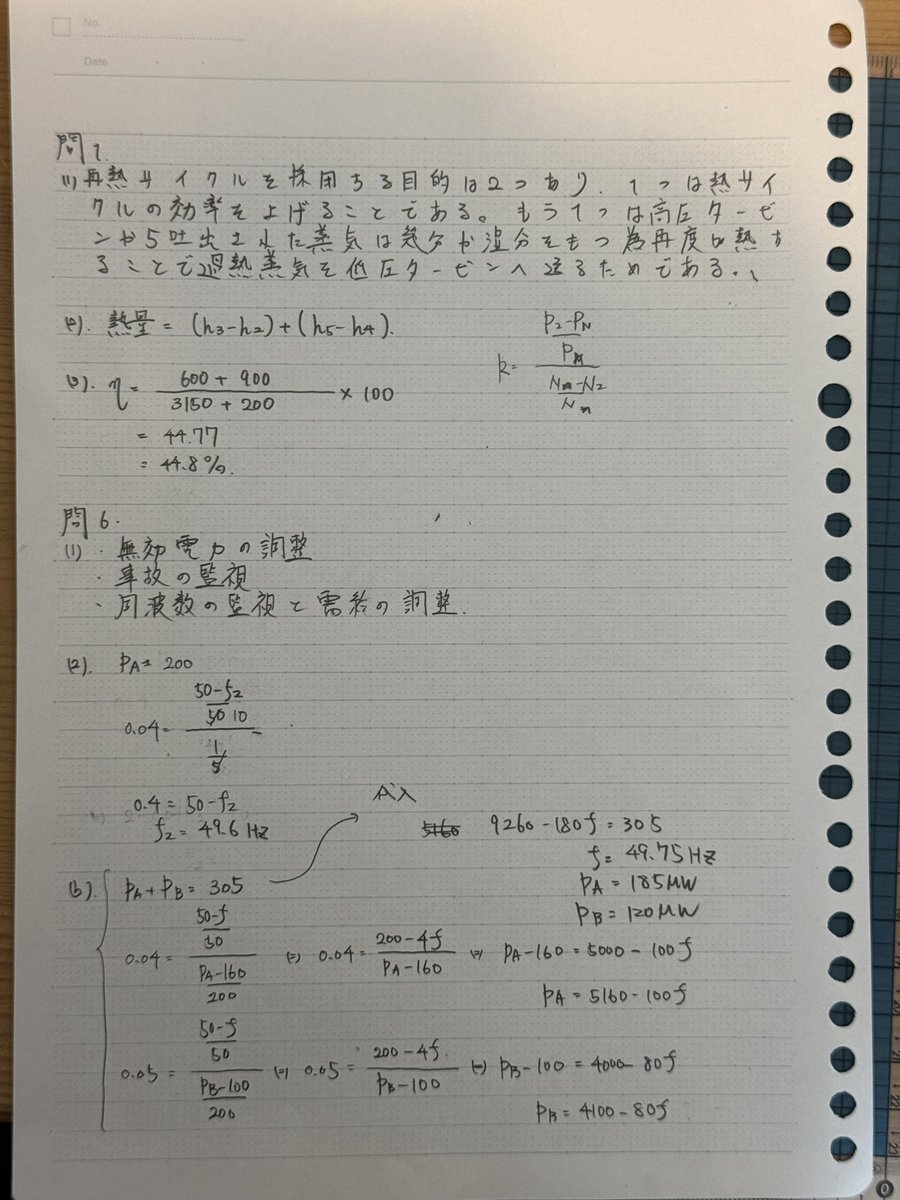 No.
Date
問1.
(1) 再熱サイクルを採用する目的は2つあり、1つは熱サイ
クルの効率を上げることである。もう1つは高圧タービ
ンから吐出された蒸気は気分が湿分をもつ為再度加熱す
ることで過熱蒸気を低圧タービンへ送るためである。
(2). 熱量 = (h3-h2)+(h5-h4).
k= ((P2-PN)/PM)/((Nm-N2)/Nn)
(3). η = (600 + 900)/(3150 + 200) × 100
= 44.77
= 44.8%.
問6.
(1) ・無効電力の調整
・事故の監視
・周波数の監視と需給の調整.
(2). PA= 200
0.04= ((50-f2)/50 10)/(1/5)
0.4 = 50-f2
f2= 49.6 Hz
(3). PA+PB= 305
代入
5160 9260-180f= 305
f= 49.75Hz
PA = 185MW
PB = 120MW
0.04= ((50-f)/50)/((PA-160)/200) (=) 0.04= (200-4f)/(PA-160) (=) PA-160 = 5000-100f
PA = 5160-100f
0.05= ((50-f)/50)/((PB-100)/200) (=) 0.05= (200-4f)/(PB-100) (=) PB-100 = 4000-80f
PB = 4100-80f
22
23
0